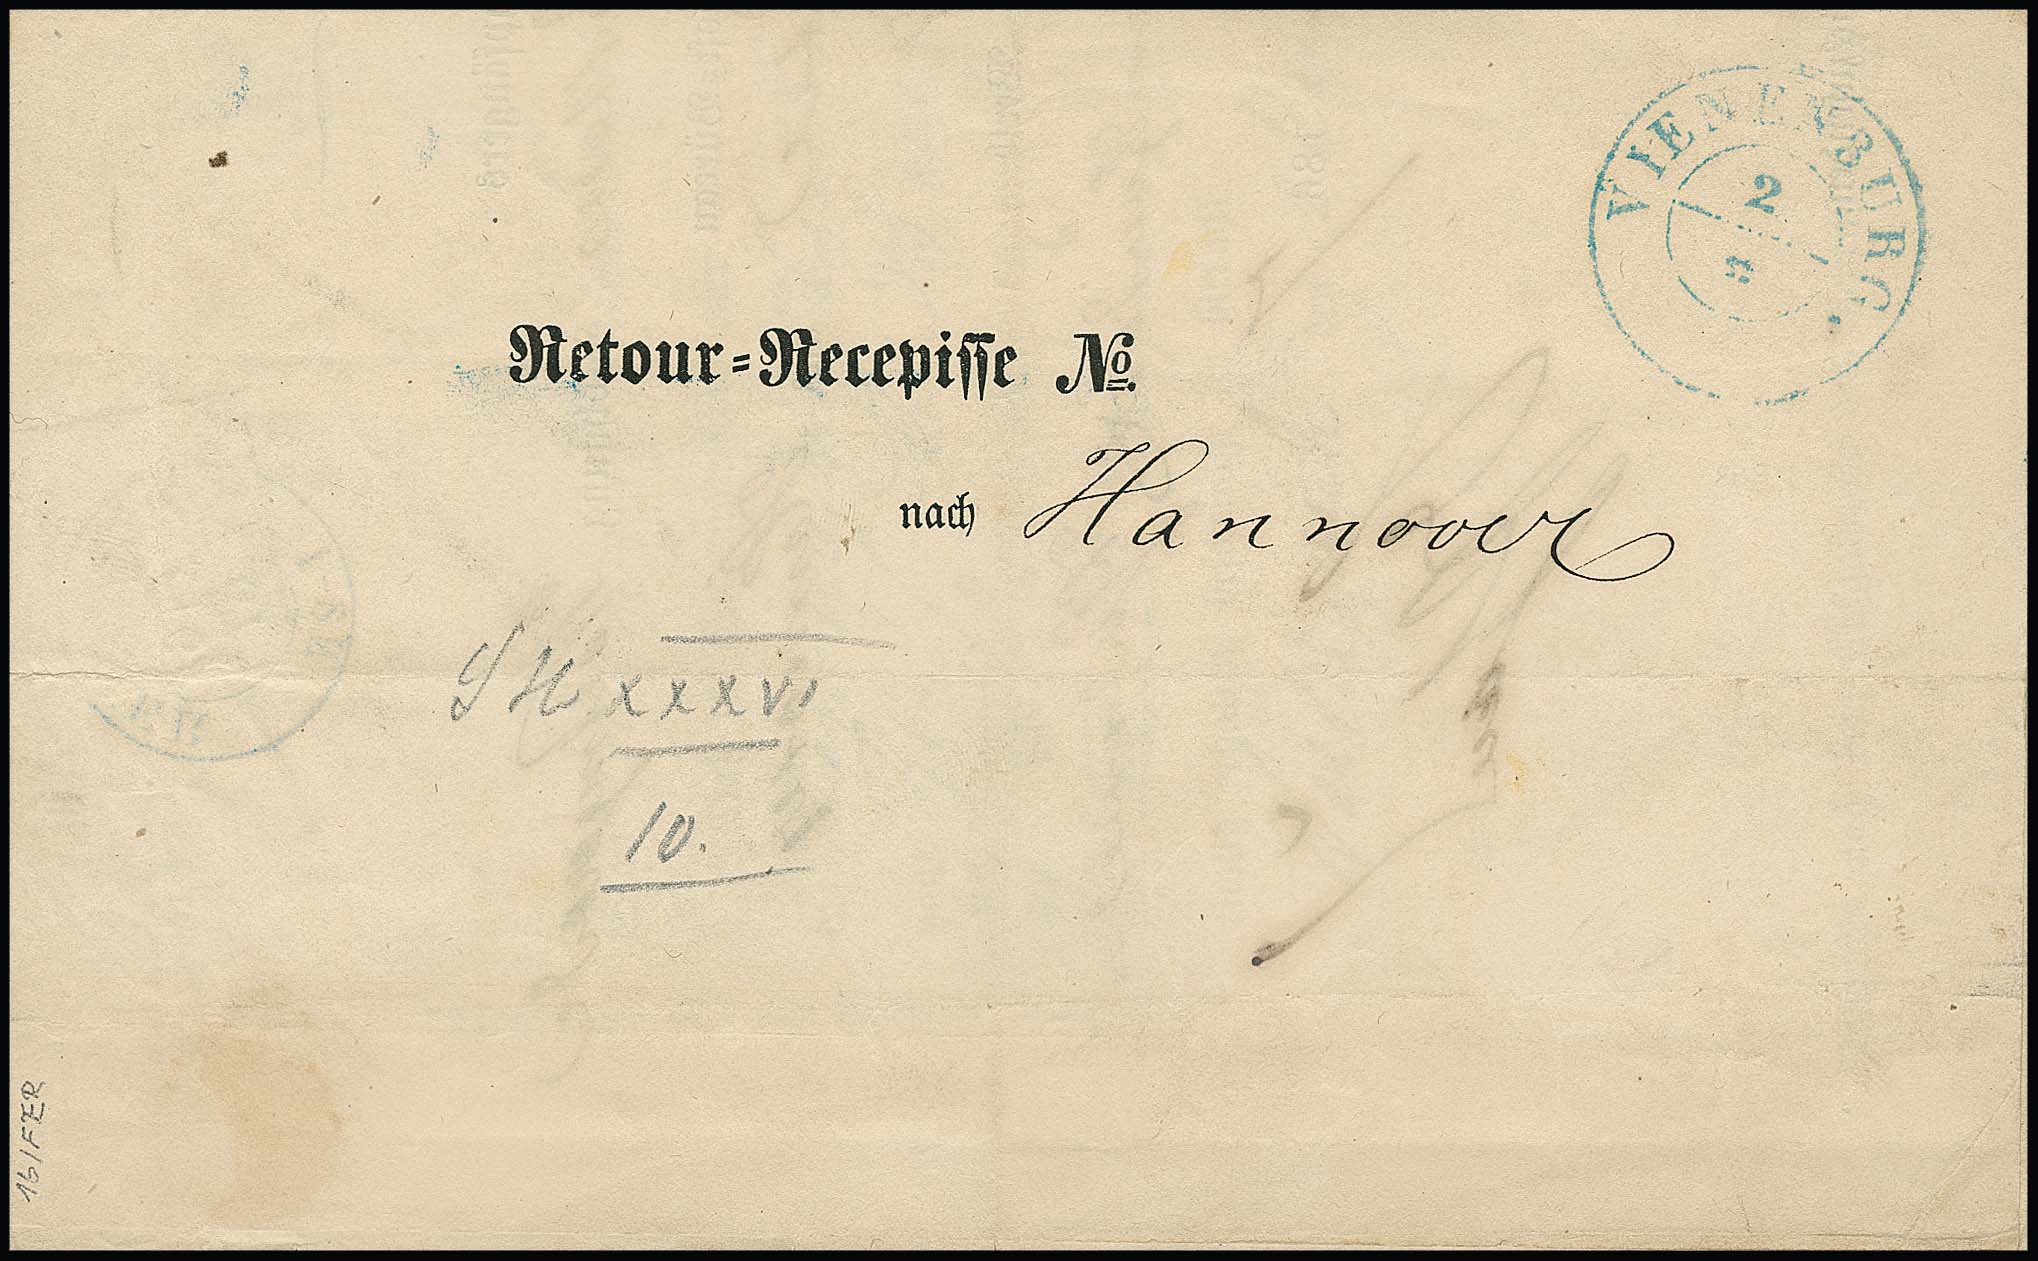 VIENENBURG
2
Retour-Recepisse No.
nach Hannover
xxxvi
10.
16/FER